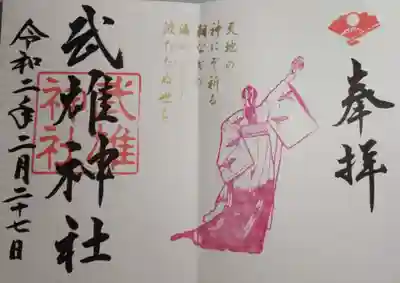 奉拝
天地の
神にぞ祈る
朝なぎの
海の
波たたぬ世を
武雄神社
武雄
神社
令和二年二月二十七日